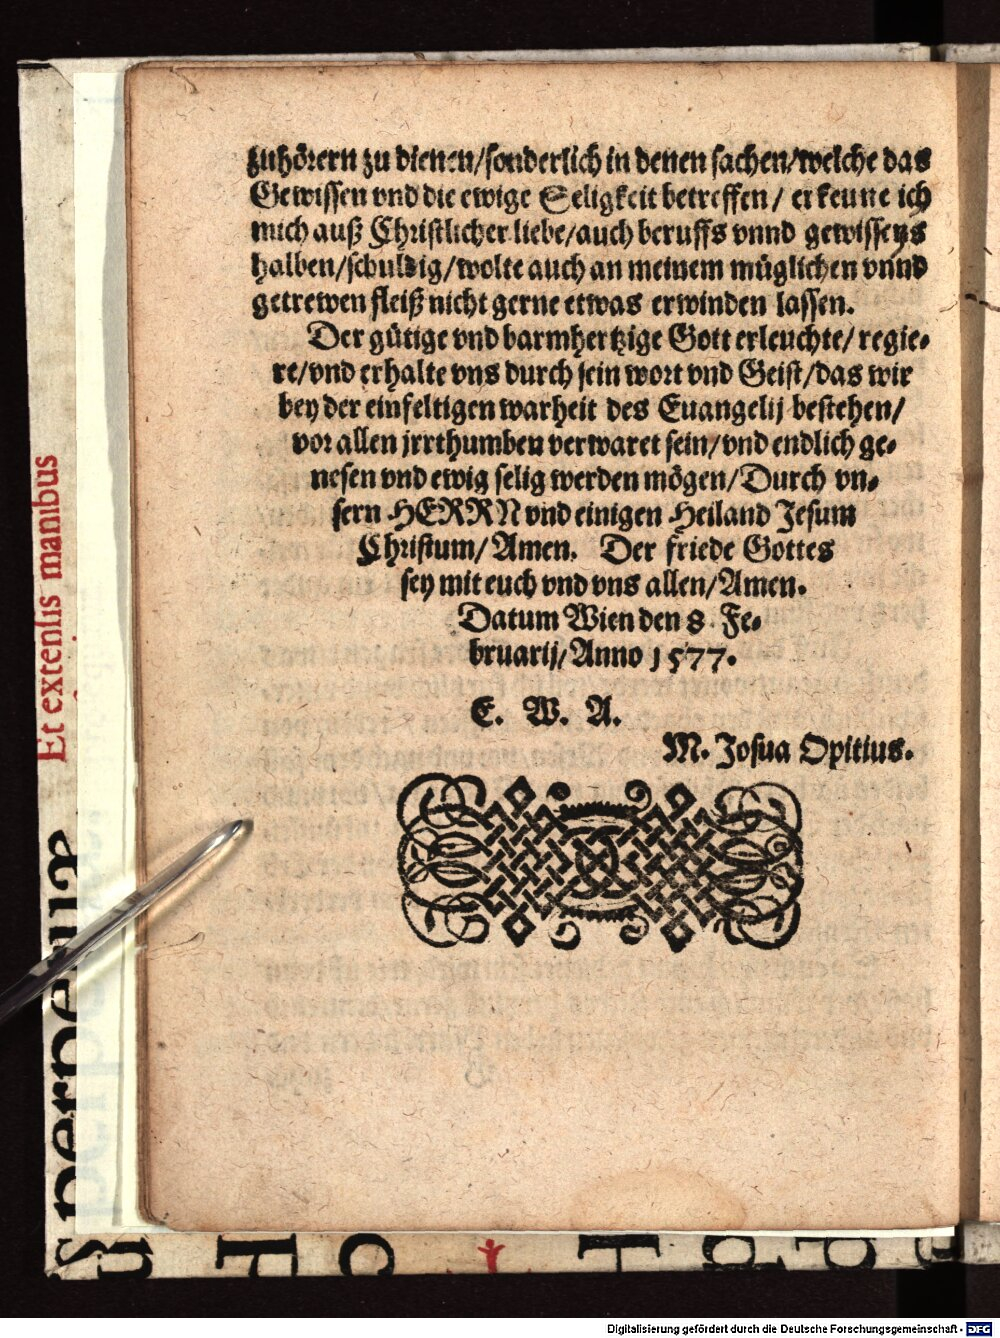 zuhörern zu dienen/sonderlich in denen sachen/welche das
Gewissen vnd die ewige Seligkeit betreffen/ erkenne ich
mich auß Christlicher liebe/auch beruffs vnnd gewissens
halben/schuldig/wolte auch an meinem müglichen vnnd
getrewen fleiß nicht gerne etwas erwinden lassen.
Der gütige vnd barmhertzige Gott erleuchte/ regie-
re/vnd erhalte vns durch sein wort vnd Geist/das wir
bey der einfeltigen warheit des Euangelij bestehen/
vor allen jrrthumben verwaret sein/vnd endlich ge-
nesen vnd ewig selig werden mögen/Durch vn-
sern HERRN vnd einigen Heiland Jesum
Christum/ Amen. Der friede Gottes
sey mit euch vnd vns allen/Amen.
Datum Wien den 8. Fe-
bruarij/Anno 1577.
E. W. A.
M. Josua Opitius.
Et extensis manibus
Digitalisierung gefördert durch die Deutsche Forschungsgemeinschaft - DFG